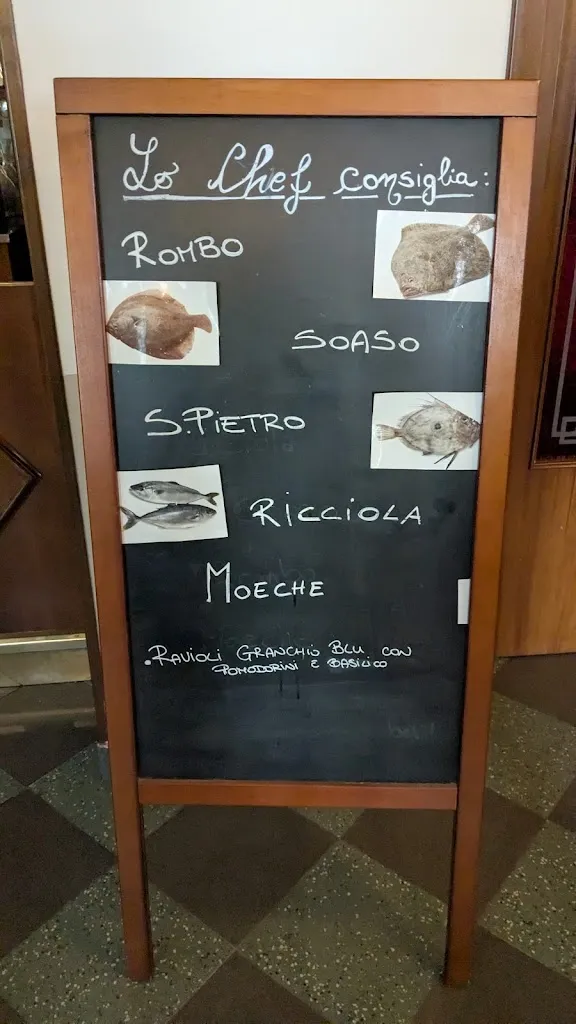 Lo Chef consiglia:
ROMBO
SOASO
S. PIETRO
RICCIOLA
MOECHE
. RAVIOLI GRANCHIO BLU CON
POMODORINI E BASILICO